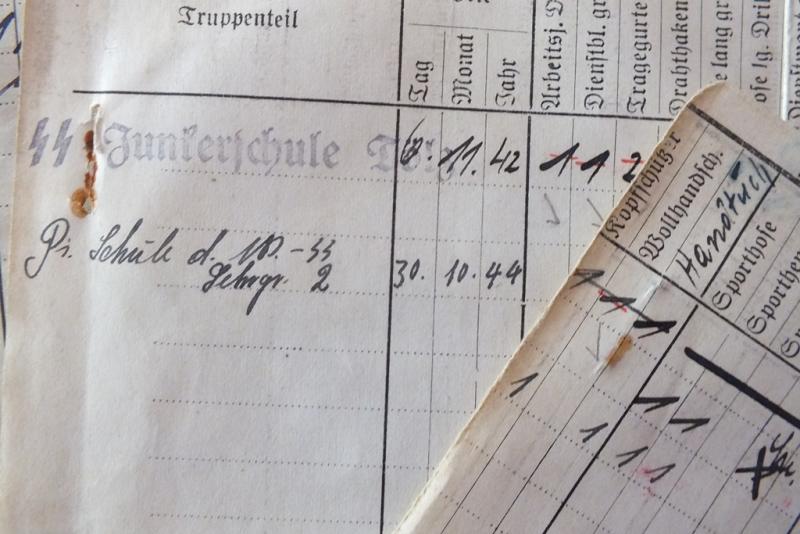 Truppenteil
Tag
Monat
Jahr
Arbeitsj.
Dienstbl. gr
Tragegurte
Drahthaken
e lang gr
ose lg. Dril
ᛋᛋ Junkerschule Tölz
6. 11. 42 1 1 2
Pi. Schule d. W.-ᛋᛋ
Lehrgr. 2 30. 10. 44
Kopfschütz.r
Wollhandsch.
Handtuch
Sporthose
Sporthem
1
1
1
1
1 1
1 1 1